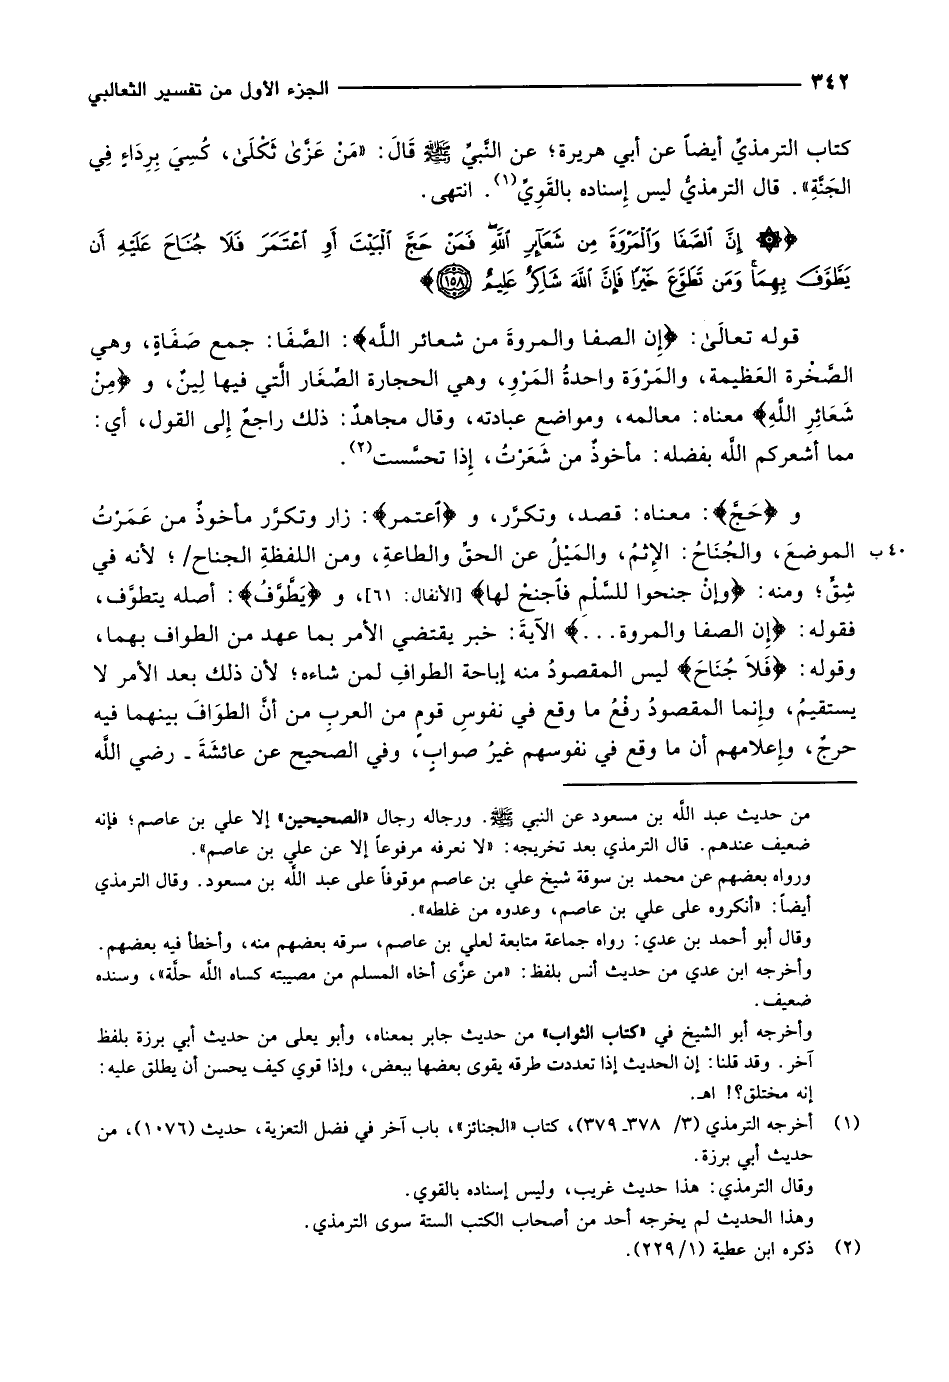 ٣٤٢ الجزء الأول من تفسير الثعالبي
كتاب الترمذيِّ أيضاً عن أبي هريرة؛ عن النَّبيِّ ﷺ قَالَ: «مَنْ عَزَّىٰ ثَكْلَىٰ، كُسِيَ بِرِدَاءٍ فِي
الجَنَّةِ». قال الترمذيُّ ليس إِسناده بالقَوِيِّ(١). انتهى.
﴿۞ إِنَّ ٱلصَّفَا وَٱلْمَرْوَةَ مِن شَعَآئِرِ ٱللَّهِۖ فَمَنْ حَجَّ ٱلْبَيْتَ أَوِ ٱعْتَمَرَ فَلَا جُنَاحَ عَلَيْهِ أَن
يَطَّوَّفَ بِهِمَاۚ وَمَن تَطَوَّعَ خَيْرًا فَإِنَّ ٱللَّهَ شَاكِرٌ عَلِيمٌ ﴿١٥٨﴾﴾
قوله تعالَىٰ: ﴿إِن الصفا والمروةَ من شعائر اللَّه﴾: الصَّفَا: جمع صَفَاةٍ، وهي
الصَّخْرة العَظِيمة، والمَرْوَة واحدةُ المَرْوِ، وهي الحجارة الصِّغَار الَّتي فيها لِينٌ، و ﴿مِنْ
شَعَائِرِ اللَّهِ﴾ معناه: معالمه، ومواضع عبادته، وقال مجاهدٌ: ذلك راجعٌ إِلى القول، أي:
مما أشعركم اللَّه بفضله: مأخوذٌ من شَعَرْتُ، إِذا تحسَّست(٢).
و ﴿حَجَّ﴾: معناه: قصد، وتكرَّر، و ﴿ٱعتمر﴾: زار وتكرَّر مأخوذٌ من عَمَرْتُ
٤٠ ب الموضعَ، والجُنَاحُ: الإِثمُ، والمَيْلُ عن الحقِّ والطاعةِ، ومن اللفظةِ الجناح/؛ لأنه في
شِقٍّ؛ ومنه: ﴿وإِنْ جنحوا للسَّلْمِ فٱجنحْ لها﴾ [الأنفال: ٦١]، و ﴿يَطَّوَّفُ﴾: أصله يتطوَّف،
فقوله: ﴿إِن الصفا والمروة...﴾ الآيةَ: خبر يقتضي الأمر بما عهد من الطواف بهما،
وقوله: ﴿فَلاَ جُنَاحَ﴾ ليس المقصودُ منه إباحة الطوافِ لمن شاءه؛ لأن ذلك بعد الأمر لا
يستقيمُ، وإِنما المقصودُ رفْعُ ما وقع في نفوسِ قومٍ من العربِ من أنَّ الطوَافَ بينهما فيه
حرجٌ، وإِعلامهم أن ما وقع في نفوسهم غيرُ صوابٍ، وفي الصحيح عن عائشَةَ ـ رضي اللَّه
من حديث عبد اللَّه بن مسعود عن النبي ﷺ. ورجاله رجال «الصحيحين» إلا علي بن عاصم؛ فإنه
ضعيف عندهم. قال الترمذي بعد تخريجه: «لا نعرفه مرفوعاً إلا عن علي بن عاصم».
ورواه بعضهم عن محمد بن سوقة شيخ علي بن عاصم موقوفاً على عبد اللَّه بن مسعود. وقال الترمذي
أيضاً: «أنكروه على علي بن عاصم، وعدوه من غلطه».
وقال أبو أحمد بن عدي: رواه جماعة متابعة لعلي بن عاصم، سرقه بعضهم منه، وأخطأ فيه بعضهم.
وأخرجه ابن عدي من حديث أنس بلفظ: «من عزَّى أخاه المسلم من مصيبته كساه اللَّه حلَّة»، وسنده
ضعيف.
وأخرجه أبو الشيخ في «كتاب الثواب» من حديث جابر بمعناه، وأبو يعلى من حديث أبي برزة بلفظ
آخر. وقد قلنا: إن الحديث إذا تعددت طرقه يقوى بعضها ببعض، وإذا قوي كيف يحسن أن يطلق عليه:
إنه مختلق؟! اهـ.
(١) أخرجه الترمذي (٣/ ٣٧٨ـ ٣٧٩)، كتاب «الجنائز»، باب آخر في فضل التعزية، حديث (١٠٧٦)، من
حديث أبي برزة.
وقال الترمذي: هذا حديث غريب، وليس إسناده بالقوي.
وهذا الحديث لم يخرجه أحد من أصحاب الكتب الستة سوى الترمذي.
(٢) ذكره ابن عطية (١/ ٢٢٩).